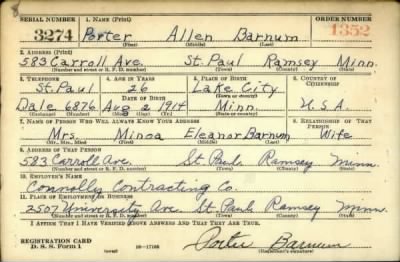 SERIAL NUMBER 1. NAME (Print) ORDER NUMBER
3274 Porter Allen Barnum 1352
(First) (Middle) (Last)
2. ADDRESS (Print)
583 Carroll Ave. St. Paul Ramsey Minn.
(Number and street or R. F. D. number) (Town) (County) (State)
3. TELEPHONE 4. AGE IN YEARS 5. PLACE OF BIRTH 6. COUNTRY OF CITIZENSHIP
St. Paul 26 Lake City
DATE OF BIRTH (Town or county)
Dale 6876 Aug 2 1914 Minn. U.S.A.
(Exchange) (Number) (Mo.) (Day) (Yr.) (State or country)
7. NAME OF PERSON WHO WILL ALWAYS KNOW YOUR ADDRESS 8. RELATIONSHIP OF THAT PERSON
Mrs. Eleanor Barnum Wife
(Mr., Mrs., Miss) (First) (Middle) (Last)
9. ADDRESS OF THAT PERSON
583 Carroll Ave. St. Paul Ramsey Minn.
(Number and street or R. F. D. number) (Town) (County) (State)
10. EMPLOYER'S NAME
Connolly Contracting Co.
11. PLACE OF EMPLOYMENT OR BUSINESS
2507 University Ave. St. Paul Ramsey Minn.
(Number and street or R. F. D. number) (Town) (County) (State)
I AFFIRM THAT I HAVE VERIFIED ABOVE ANSWERS AND THAT THEY ARE TRUE.
REGISTRATION CARD
D. S. S. Form 1 Porter Barnum
(Registrant's signature)